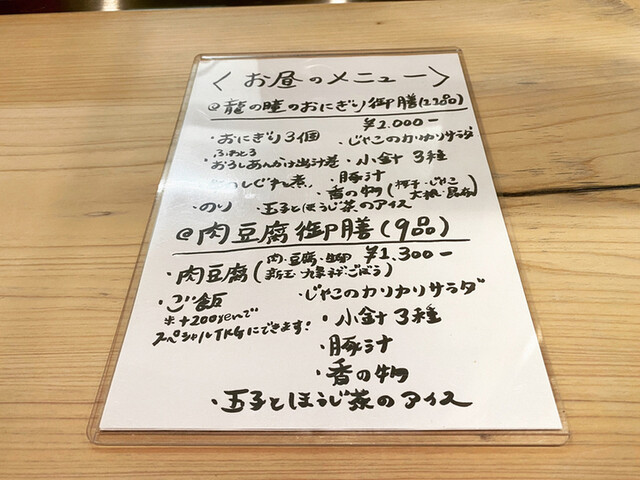 〈お昼のメニュー〉
@龍の瞳のおにぎり御膳(12品)
¥2.000-
・おにぎり3個 ・じゃこのカリカリサラダ
ふわとろ
・おろしあんかけ出汁巻 ・小鉢3種
煮 ・豚汁
・香の物(じゃこ
大根・昆布)
・のり ・玉子とほうじ茶のアイス
@肉豆腐御膳(9品)
¥1,300-
・肉豆腐(肉・豆腐・
新玉・九条ネギ・ごぼう)
・ご飯 ・じゃこのカリカリサラダ
※+200yenで
スペシャルTKGにできます! ・小鉢3種
・豚汁
・香の物
・玉子とほうじ茶のアイス